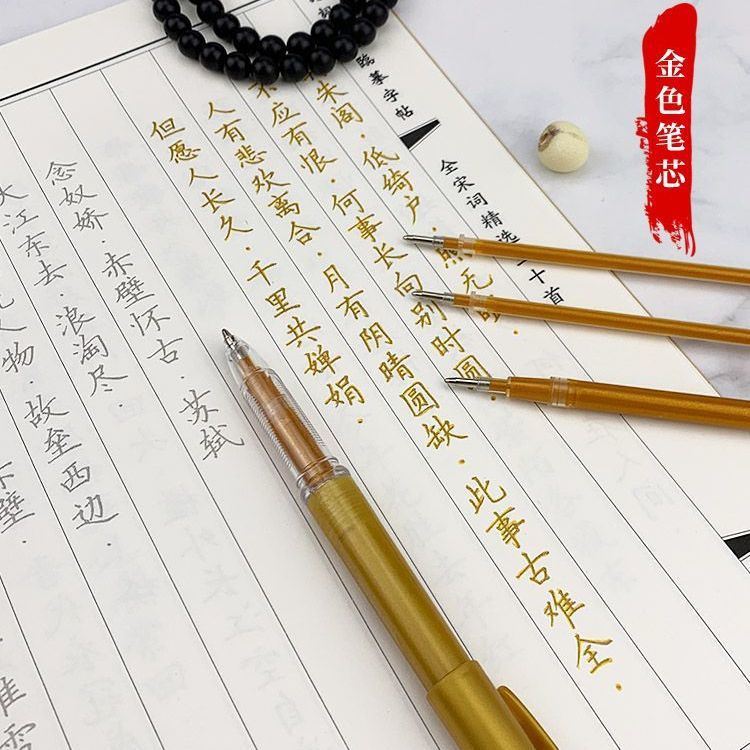 金色笔芯
临摹字帖
全宋词精选
十首
朱阁·低绮户·照无
应有恨·何事长向别时圆·
人有悲欢离合·月有阴晴圆缺·此事古难全·
但愿人长久·千里共婵娟·
念奴娇·赤壁怀古·苏轼
大江东去·浪淘尽·
人物·故垒西边·
壁·